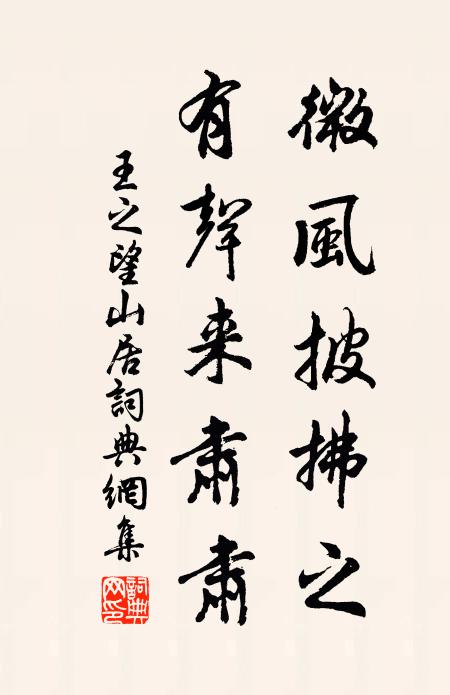 微風披拂之
有聲来肅肅
王之望山居詞典網集
詞典网印